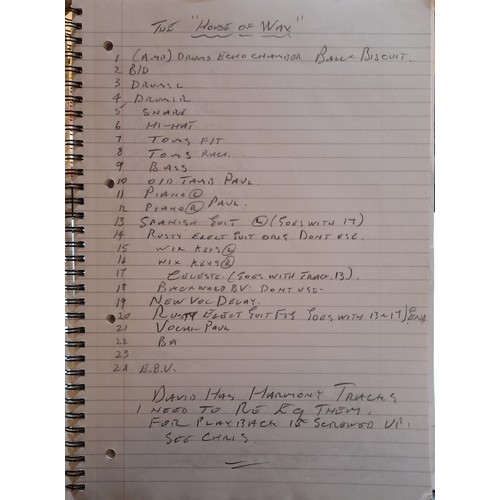 THE "HOUSE OF WAX"
1 (AMB) DRUMS ECHO CHAMBER BALL & BISCUIT.
2 B/D
3 DRUMS L
4 DRUMS R
5 SNARE
6 HI-HAT
7 TOMS FLT
8 TOMS RACK.
9 BASS
10 OLD TAMB PAUL.
11 PIANO Ⓛ
12 PIANO Ⓡ PAUL.
13 SPANISH GUIT Ⓛ (GOES WITH 17)
14 RUSTY ELECT GUIT ORIG DONT USE.
15 WIX KEYS Ⓛ
16 WIX KEYS Ⓡ
17 CELESTE. (GOES WITH TRACK.13).
18 BACKWARD BV. DONT USE-
19 NEW VOC DELAY.
20 RUSTY ELECT GUIT FIX GOES WITH 13 & 17)
21 VOCAL PAUL
22 BA
23
24 E.B.V.
DAVID HAS HARMONY TRACKS
I NEED TO RE EQ THEM.
FOR PLAYBACK IS SCREWED UP!
SEE CHRIS.